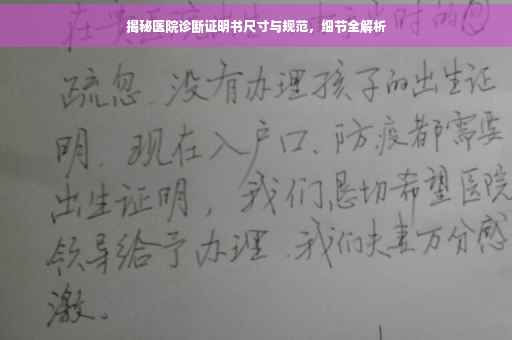 揭秘医院诊断证明书尺寸与规范，细节全解析
疏忽.没有办理孩子的出生证
明.现在入户口、防疫都需要
出生证明，我们恳切希望医院
领导给予办理.我们夫妻万分感
激。